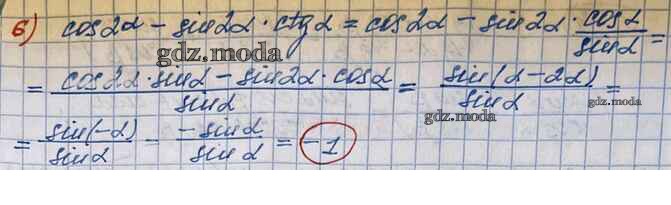 б) cos2α − sin2α · ctgα = cos2α − sin2α · cosα/sinα =
gdz.moda
= (cos2α · sinα − sin2α · cosα)/sinα = sin(α−2α)/sinα =
gdz.moda
gdz.moda
= sin(−α)/sinα = −sinα/sinα = −1